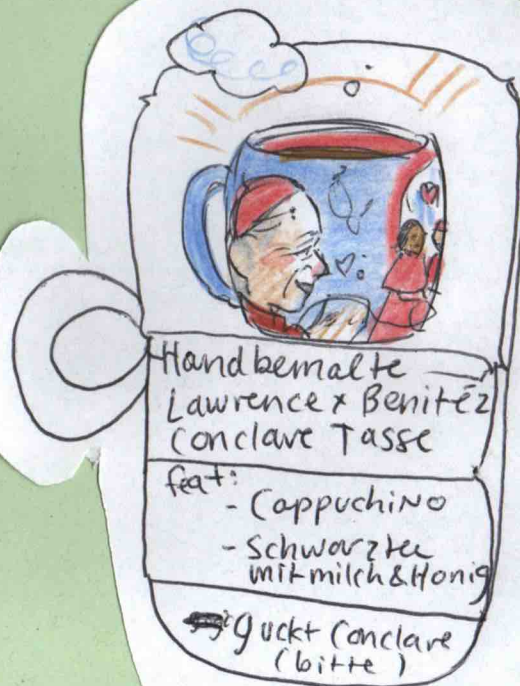 Handbemalte
Lawrence x Benitéz
Conclave Tasse
feat:
- CappuchiNo
- Schwarztee
mitmilch&Honig
guckt Conclave
(bitte)